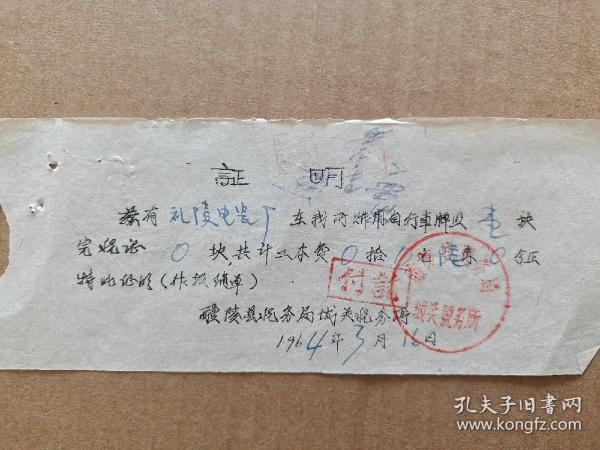 証 明
兹有 礼陵电瓷厂 在我所炸用自行车牌照 壹 块
完税证 0 块共计工本费 0 拾 0 元 陆 角 0 分正
特此证明(作报销单).
醴陵县税务局城关税务所
1964年3月16日
付訖
城关税务所
孔夫子旧书网
www.kongfz.com